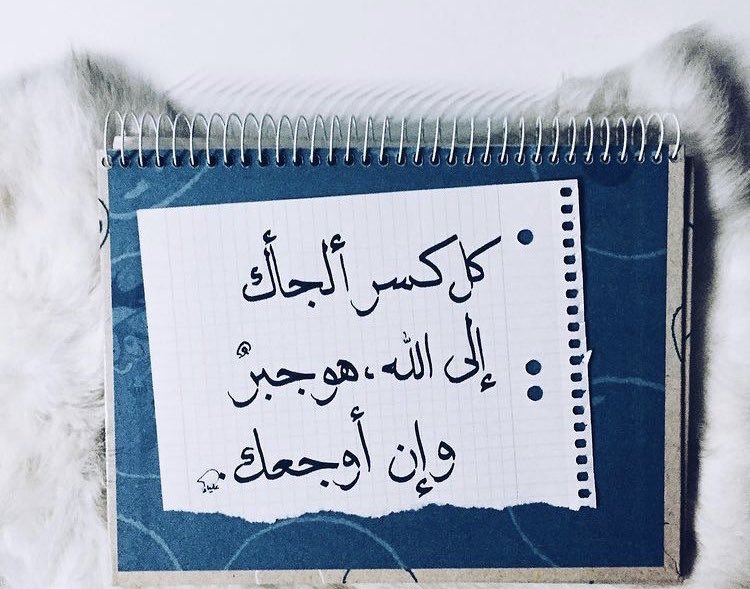 كل كسر ألجأك
إلى الله، هو جبرٌ
وإن أوجعك.